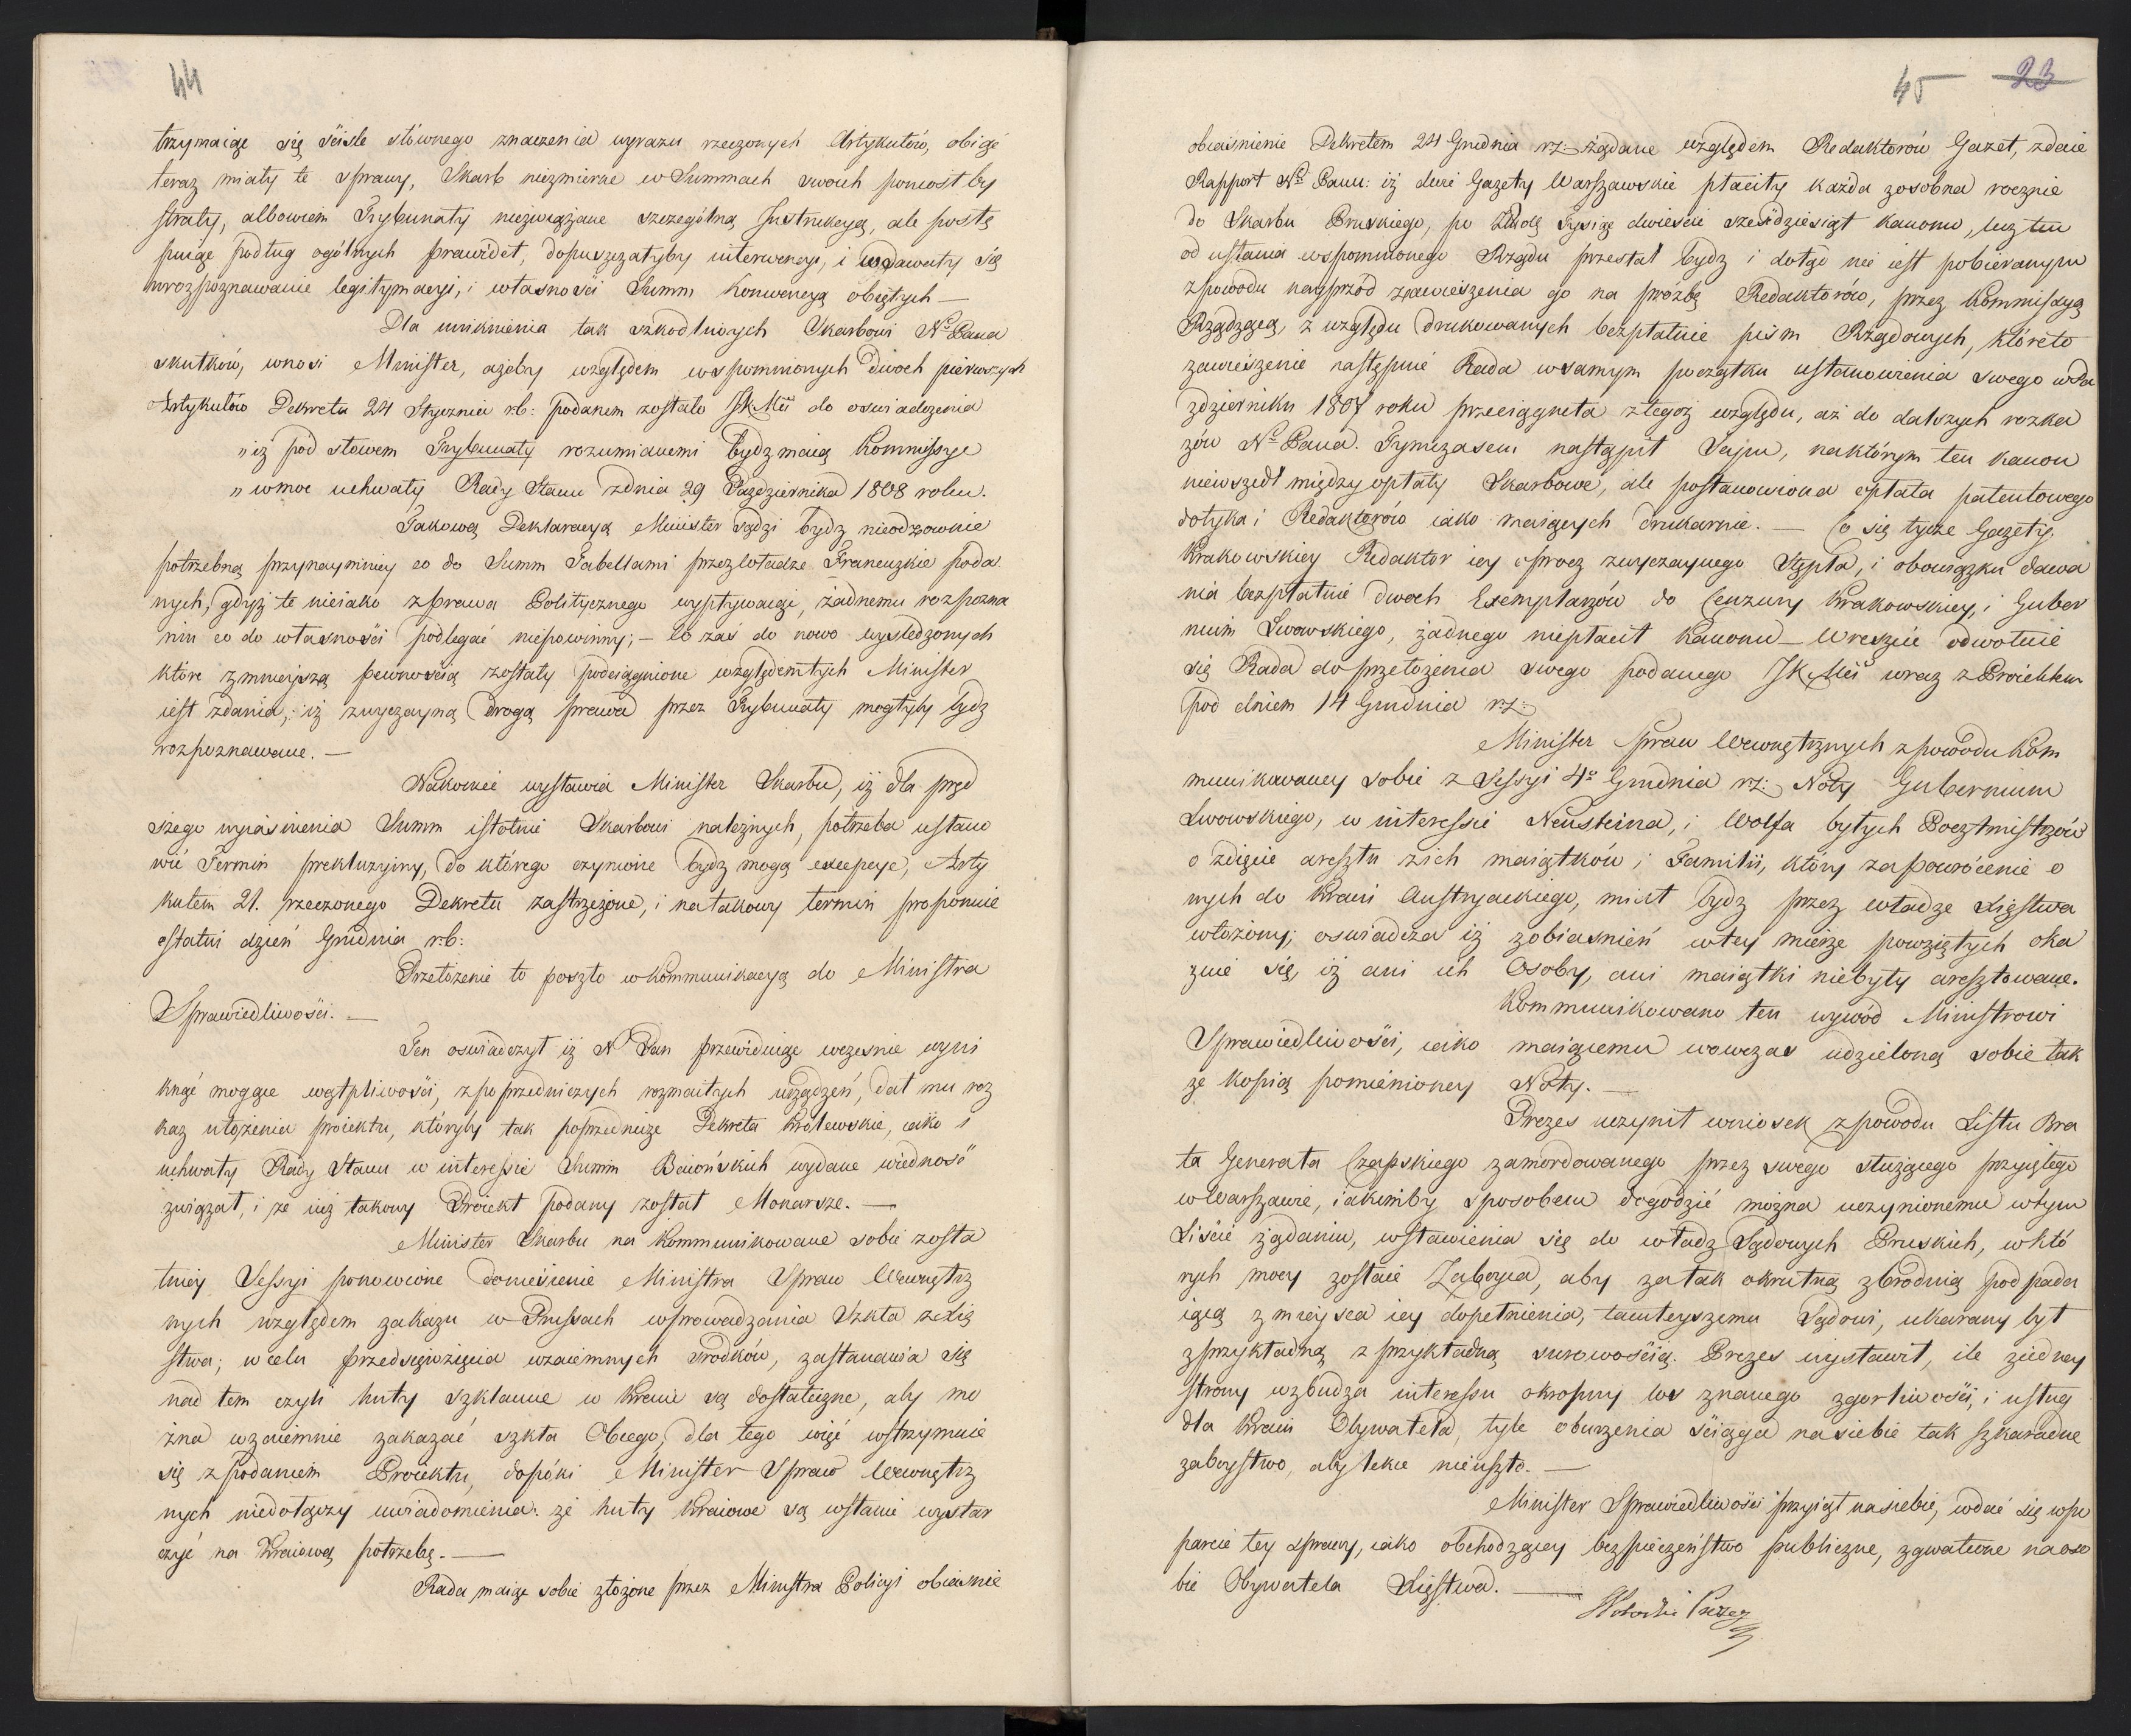 44
trzymaiąc się ściśle słównego znaczenia wyrazu rzeczonych Artykułów, obiąć
teraz miały te sprawy, Skarb niezmierne w Summach swoich poniosł by
straty, albowiem Trybunały niezwiązane szczególną Instrukcyą, ale postę
puiąc podług ogólnych prawideł, dopuszczałyby interwencye, i wdawały się
wrozpoznawanie legitymacyi, i własności Summ Konwencyą obiętych —
Dla uniknienia tak szkodliwych Skarbowi No Pana
skutków, wnosi Minister, ażeby względem wspomnionych dwoch pierwszych
Artykułów Dekretu 24 Stycznia r.b: podanem zostało JKMci do oswiadczenia
„iż pod słowem Trybunały rozumianemi bydz maią Kommissye
„wmoc uchwały Rady Stanu zdnia 29 Pazdziernika 1808 roku.
Takową Deklaracyą Minister sądzi bydz nieodzownie
potrzebną przynaymniey co do Summ Tabellami przez Władze Francuzkie poda
nych, gdyż te nieiako z prawa Politycznego wypływaiąc, żadnemu rozpozna
niu co do własności podlegać niepowinny; — Co zaś do nowo wysledzonych
które zmnieyszą pewnością zostały podciągnione względem tych Minister
iest zdania, iż zwyczayną drogą prawa przez Trybunały mogłyby bydz
rozpoznawane. —
Nakoniec wystawia Minister Skarbu, iż dla pręd
szego wyiasnienia Summ istotnie Skarbowi należnych, potrzeba ustano
wić Termin prekluzyiny, do którego czynione bydz mogą excepcye, Arty
kułem 21. rzeczonego Dekretu zastrzeżone, i na takowy termin proponuie
ostatni dzień Grudnia r.b:
Przełożenie to poszło w kommunikacyą do Ministra
Sprawiedliwości. —
Ten oswiadczył iż No Pan przewiduiąc wczesnie wyni
knąć mogące wątpliwości, z poprzedniczych rozmaitych urządzeń, dał mu roz
kaz ułożenia proiektu, któryby tak poprzednicze Dekreta Królewskie, iako i
uchwały Rady Stanu w interessie Summ Baiońskich wydane wiedność
związał, i że iuż takowy Proiekt podany został Monarsze. —
Minister Skarbu na kommunikowane sobie zosta
tniey Sessyi ponowione doniesienie Ministra Spraw Wewnętrz
nych względem zakazu w Prussach wprowadzania Szkła zXię
stwa; w celu przedsięwzięcia wzaiemnych srodków, zastanawia się
nad tem czyli huty szklanne w kraiu są dostateczne, aby mo
żna wzaiemnie zakazać szkła Obcego, dla tego więc wstrzymuie
się z podaniem Proiektu, dopóki Minister Spraw Wewnętrz
nych niedołączy uwiadomienia: że huty kraiowe są wstanie wystar
czyć na kraiową potrzebę. —
Rada maiąc sobie złożone przez Ministra Policyi obiasnie
45 23
obiaśnienie Dekretem 24 Grudnia r.z: żądane względem Redaktorów Gazet, zdaie
Rapport No Panu: iż dwie Gazety Warszawskie płaciły każda zosobna rocznie
do Skarbu Pruskiego, po tysiąc dwieście sześćdziesiąt kanonu, lecz ten
od ustania wspomnionego Rządu przestał bydz i dotąd nie iest pobieranym
zpowodu nayprzód zawieszenia go na prózbę Redaktorów, przez Kommissyą
Rządzącą, z względu drukowanych bezpłatnie pism Rządowych, któreto
zawieszenie następnie Rada wsamym początku ustanowienia swego w Pa
zdzierniku 1807 roku przeciągneła ztegoż względu, aż do dalszych rozka
zów No Pana. Tymczasem nastąpił Seym, naktórym ten kanon
niewszedł między opłaty Skarbowe, ale postanowiona opłata patentowego
dotyka i Redaktorów iako maiących drukarnie. — Co się tycze Gazety
Krakowskiey Redaktor iey oprocz zwyczaynego Stępla, i obowiązku dawa
nia bezpłatnie dwoch Exemplarzów do Cenzury Krakowskiey, i Guber
nium Lwowskiego, żadnego niepłacił kanonu — Wreszcie odwołuie
się Rada do przełożenia swego podanego JKMci wraz z Proiektem
pod dniem 14 Grudnia r.z:
Minister Spraw Wewnętrznych z powodu Kom
munikowaney sobie z Sessyi 4o Grudnia r.z: Noty Gubernium
Lwowskiego, w interessie Neusteina, i Wolfa byłych Pocztmistrzów
o zdięcie aresztu zich maiątków i Familii, który za powrócenie o
nych do kraiu Austryackiego, miał bydz przez władze Xięstwa
włożony; oswiadcza iż zobiasnień wtey mierze powziętych oka
zuie się, iż ani ich Osoby, ani maiątki niebyły aresztowane.
Kommunikowano ten wywód Ministrowi
Sprawiedliwości, iako maiącemu wowczas udzieloną sobie tak
że kopią pomienioney Noty. —
Prezes uczynił wniosek z powodu Listu Bra
ta Generała Czapskiego zamordowanego przez swego służącego przyiętego
w Warszawie, iakimby sposobem dogodzić można uczynionemu wtym
Liście żądaniu, wstawienia się do władz Sądowych Pruskich, w któ
rych mocy zostaie Zabóyca, aby za tak okrutną zbrodnią podpada
iącą z mieysca iey dopełnienia, tamteyszemu Sądowi, ukarany był
zprzykładną z przykładną surowością. Prezes wystawił, ile ziedney
strony wzbudza interessu okropny los znanego zgorliwości, i usług
dla kraiu Obywatela, tyle oburzenia ściąga nasiebie tak szkaradne
zabóystwo, aby lekce nieuszło. —
Minister Sprawiedliwości przyiął nasiebie, wdać się wpo
parcie tey sprawy, iako obchodzącey bezpieczeństwo publiczne, zgwałcone naoso
bie Obywatela Xięstwa. —
Prezes